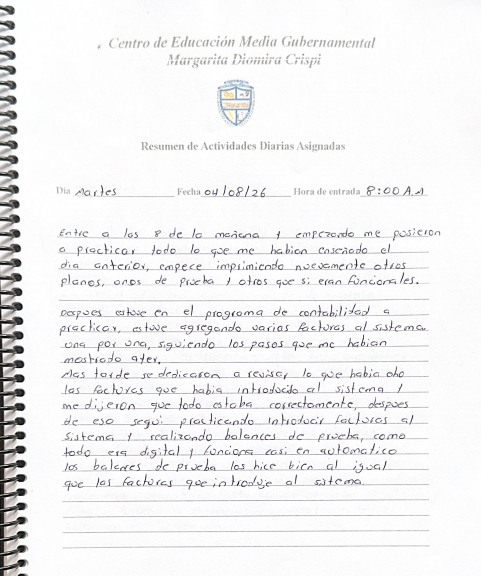 Centro de Educación Media Gubernamental
Margarita Diomira Crispi
Resumen de Actividades Diarias Asignadas
Dia Martes Fecha 04/08/26 Hora de entrada 8:00 A.M
Entre a las 8 de la mañana y empezando me posieron
a practicar todo lo que me habian enseñado el
dia anterior, empece imprimiendo nuevamente otros
planos, unos de prueba y otros que si eran funcionales.
Despues estuve en el programa de contabilidad a
practicar, estuve agregando varias facturas al sistema
una por una, siguiendo los pasos que me habian
mostrado ayer.
Mas tarde se dedicaron a revisar lo que habia
las facturas que habia introducido al sistema y
me dijeron que todo estaba correctamente, despues
de eso segui practicando introducir facturas al
sistema y realizando balances de prueba, como
todo era digital y funciona casi en automatico
los balances de prueba los hice bien al igual
que las facturas que introduje al sistema.